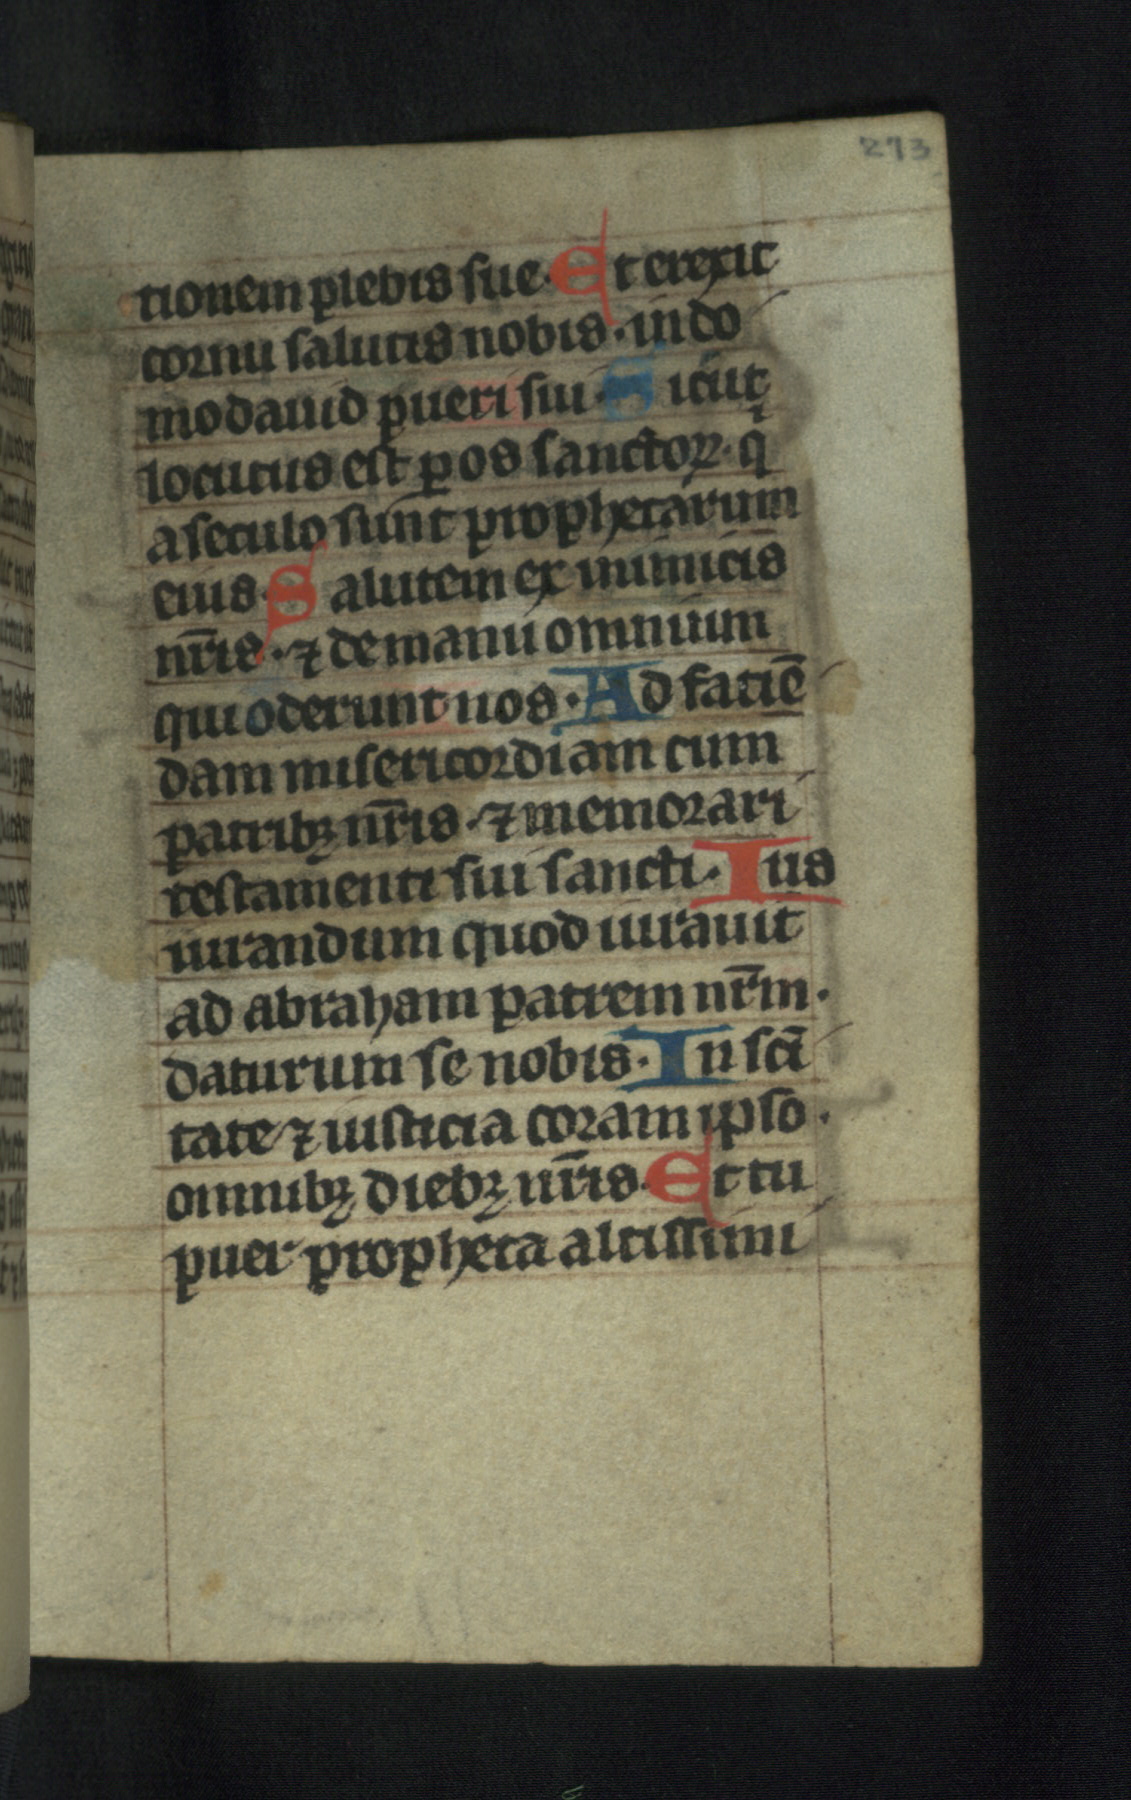 273
tionem plebis sue. Et erexit
cornu salutis nobis. in do
mo dauid pueri sui. Sicut
locutus est ꝑ os sanctoꝝ. qͥ
a seculo sunt prophetarum
eius. Salutem ex inimicis
nr̄is. ⁊ de manu omnium
qui oderunt nos. Ad faciē
dam misericordiam cum
patribꝫ nr̄is. ⁊ memorari
testamenti sui sancti. Ius
iurandum quod iurauit
ad abraham patrem nr̄m.
daturum se nobis. In sc̄i
tate ⁊ iusticia coram ipso.
omnibꝫ diebꝫ nr̄is. Et tu
puer propheta altissimi